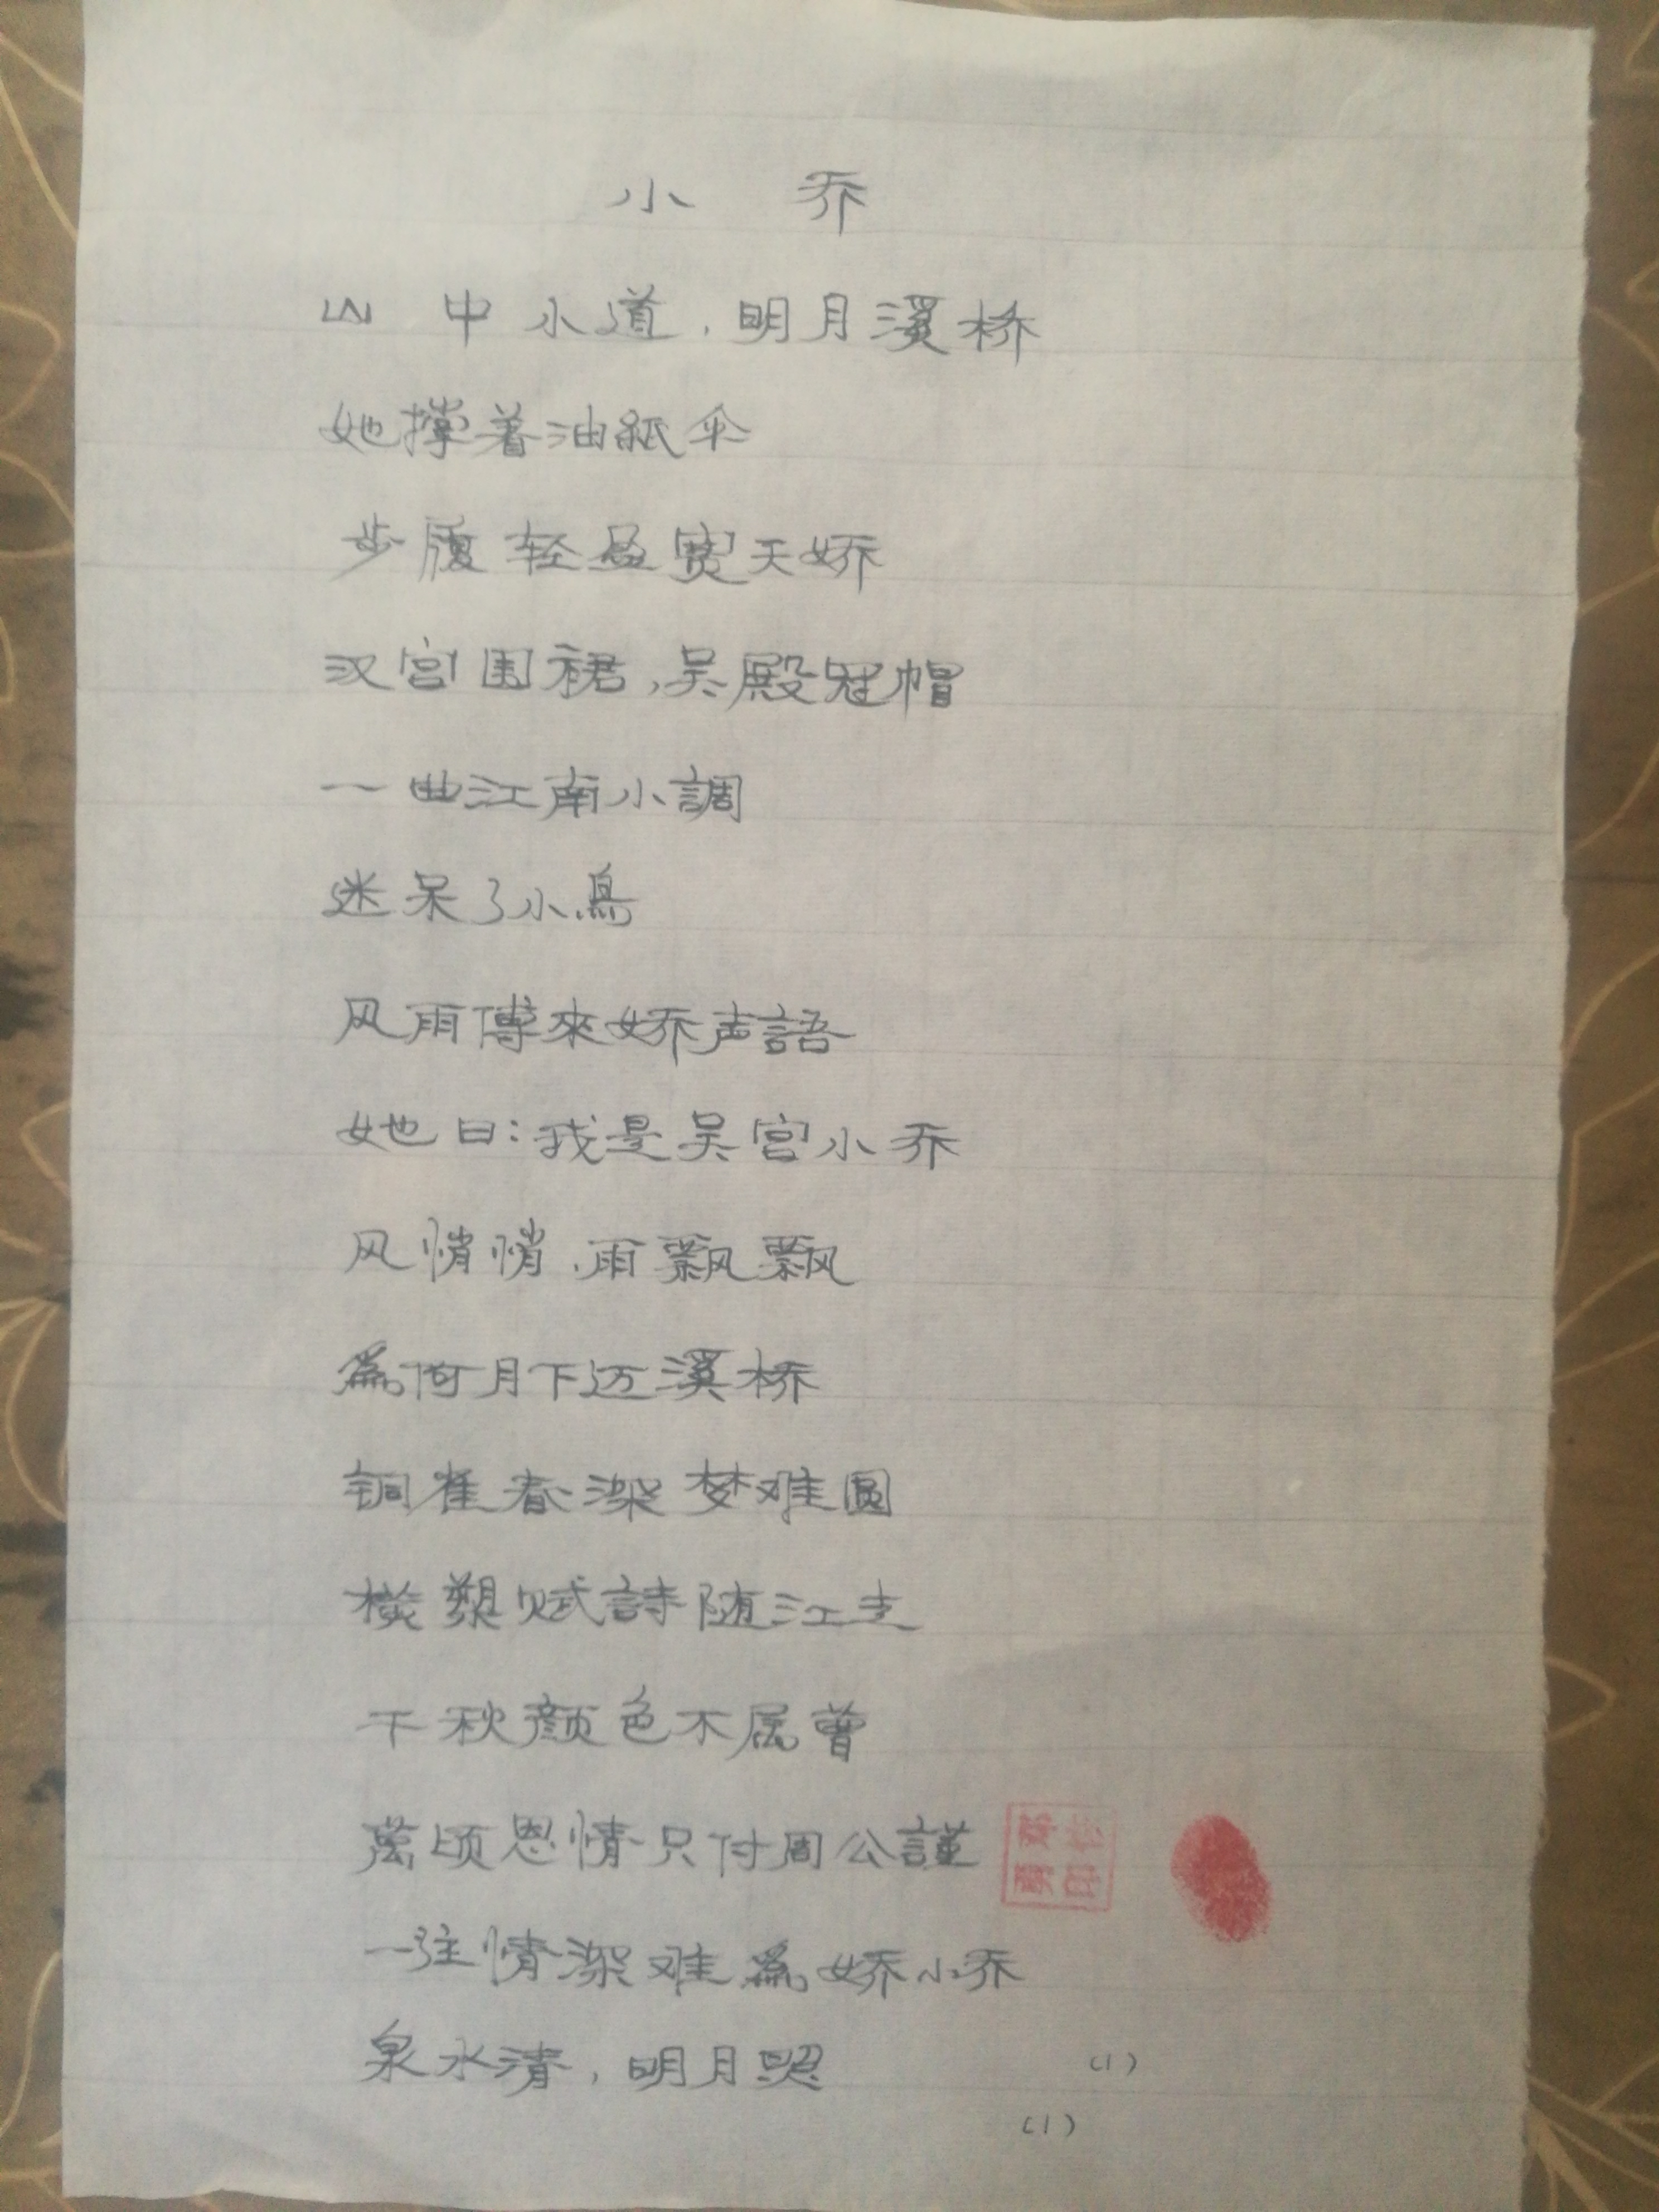 小 乔
山中小道，明月溪桥
她撑着油紙伞
步履轻盈赛天娇
汉宫围裙，吴殿冠帽
一曲江南小調
迷呆了小鳥
风雨傳來娇声語
她曰：我是吴宫小乔
风悄悄，雨飘飘
為何月下迈溪桥
铜雀春深梦难圆
横槊赋詩随江去
千秋颜色不属曹
萬顷恩情只付周公謹
一往情深难為娇小乔
泉水清，明月照
(1)
(1)